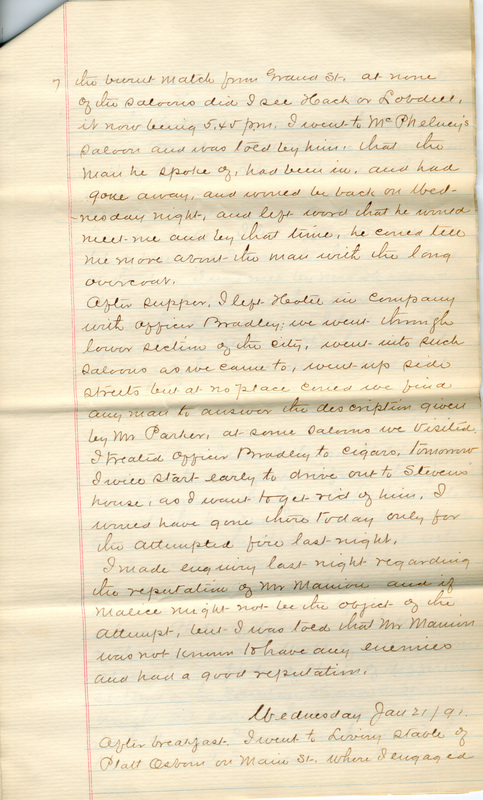 7 the burnt match from Grand St. at none
of the saloons did I see Hack or Lobdell,
it now being 5,45 pm. I went to McPhelney's
saloon and was told by him, that the
man he spoke of, had been in, and had
gone away, and would be back on Wed-
nesday night, and left word that he would
meet me and by that time, he could tell
me more about the man with the long
overcoat.
After supper, I left Hotel in company
with officer Bradley; we went through
lower section of the city, went into such
saloons as we came to, went up side
streets but at no place could we find
any man to answer the description given
by Mr Parker, at some saloons we visited,
I treated officer Bradley to cigars, tomorrow
I will start early to drive out to Stevens
house, as I want to get rid of him, I
would have gone there today only for
the attempted fire last night.
I made enquiry last night regarding
the reputation of Mr Manion and if
malice might not be the object of the
attempt, but I was told that Mr Manion
was not known to have any enemies
and had a good reputation.
Wednesday Jan 21/91.
After breakfast. I went to Livery stable of
Platt Osborn on Main St. where I engaged